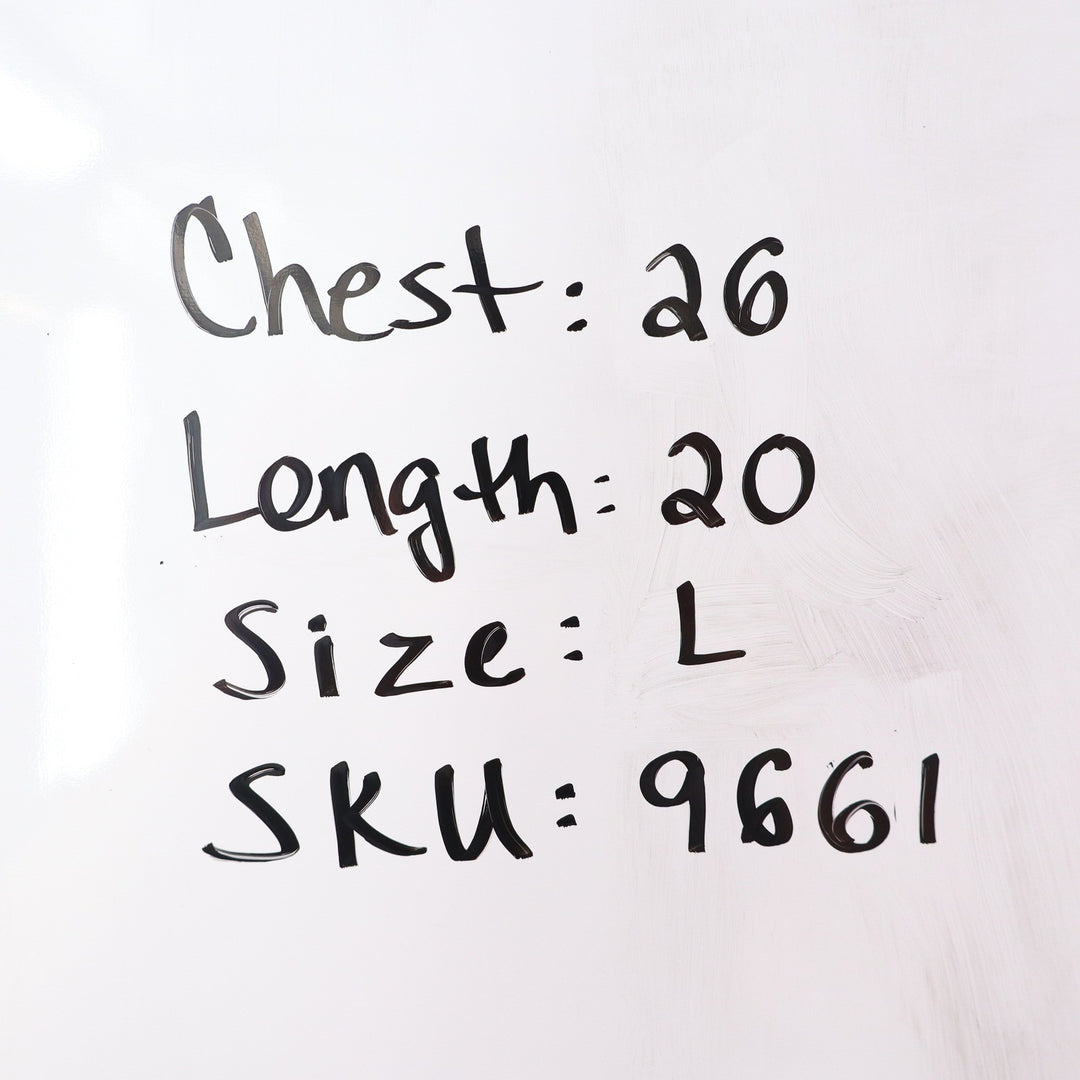 Chest: 26
Length: 20
Size: L
SKU: 9661